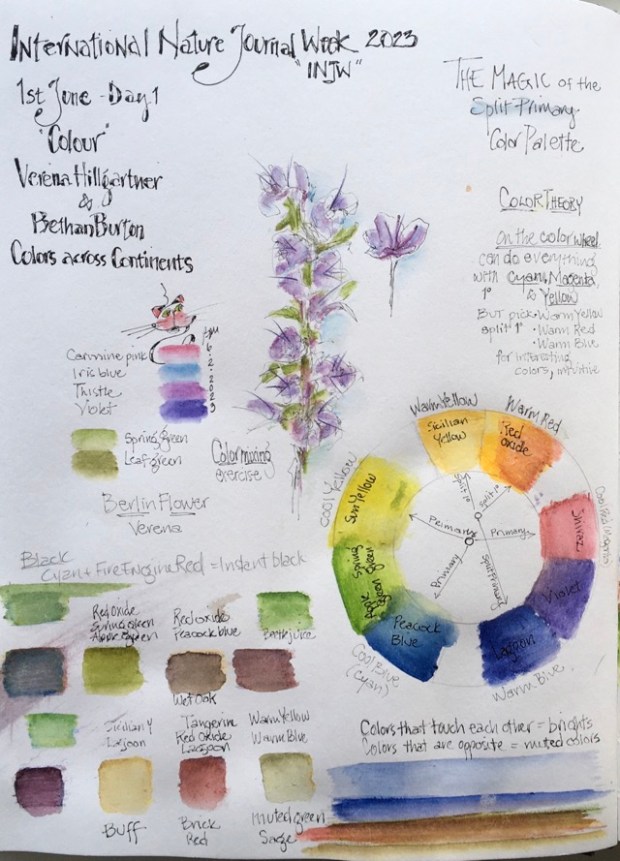 International Nature Journal Week 2023
"INJW"
1st June - Day 1
"Colour"
Verena Hillgärtner
&
Bethan Burton
Colors across Continents
THE MAGIC of the
Split Primary
Color Palette
COLOR THEORY
on the color wheel
can do everything
with Cyan, Magenta,
1° & Yellow
But pick • Warm Yellow
split 1° • Warm Red
• Warm Blue
for interesting
colors, intuitive
Carmine pink
Iris blue
Thistle
Violet
6
2
2023
Spring green
Leaf green
Color mixing
exercise
Berlin Flower
Verena
Black
Cyan + Fire Engine Red = Instant black
Red oxide
Spring green
Apple green
Red oxide
Peacock blue
Wet Oak
Sicilian Y
Lagoon
Tangerine
Red Oxide
Lagoon
Warm Yellow
Warm Blue
Buff
Brick
Red
muted green
Sage
Warm Yellow
Sicilian
Yellow
Warm Red
Red
oxide
Cool Yellow
Sun Yellow
Shiraz
Violet
Lagoon
Warm Blue
Peacock
Blue
Cool Blue
(Cyan)
Apple green
Spring green
Split 1°
Split 1°
Primary
Primary
Primary
Split Primary
Colors that touch each other = brights
Colors that are opposite = muted colors